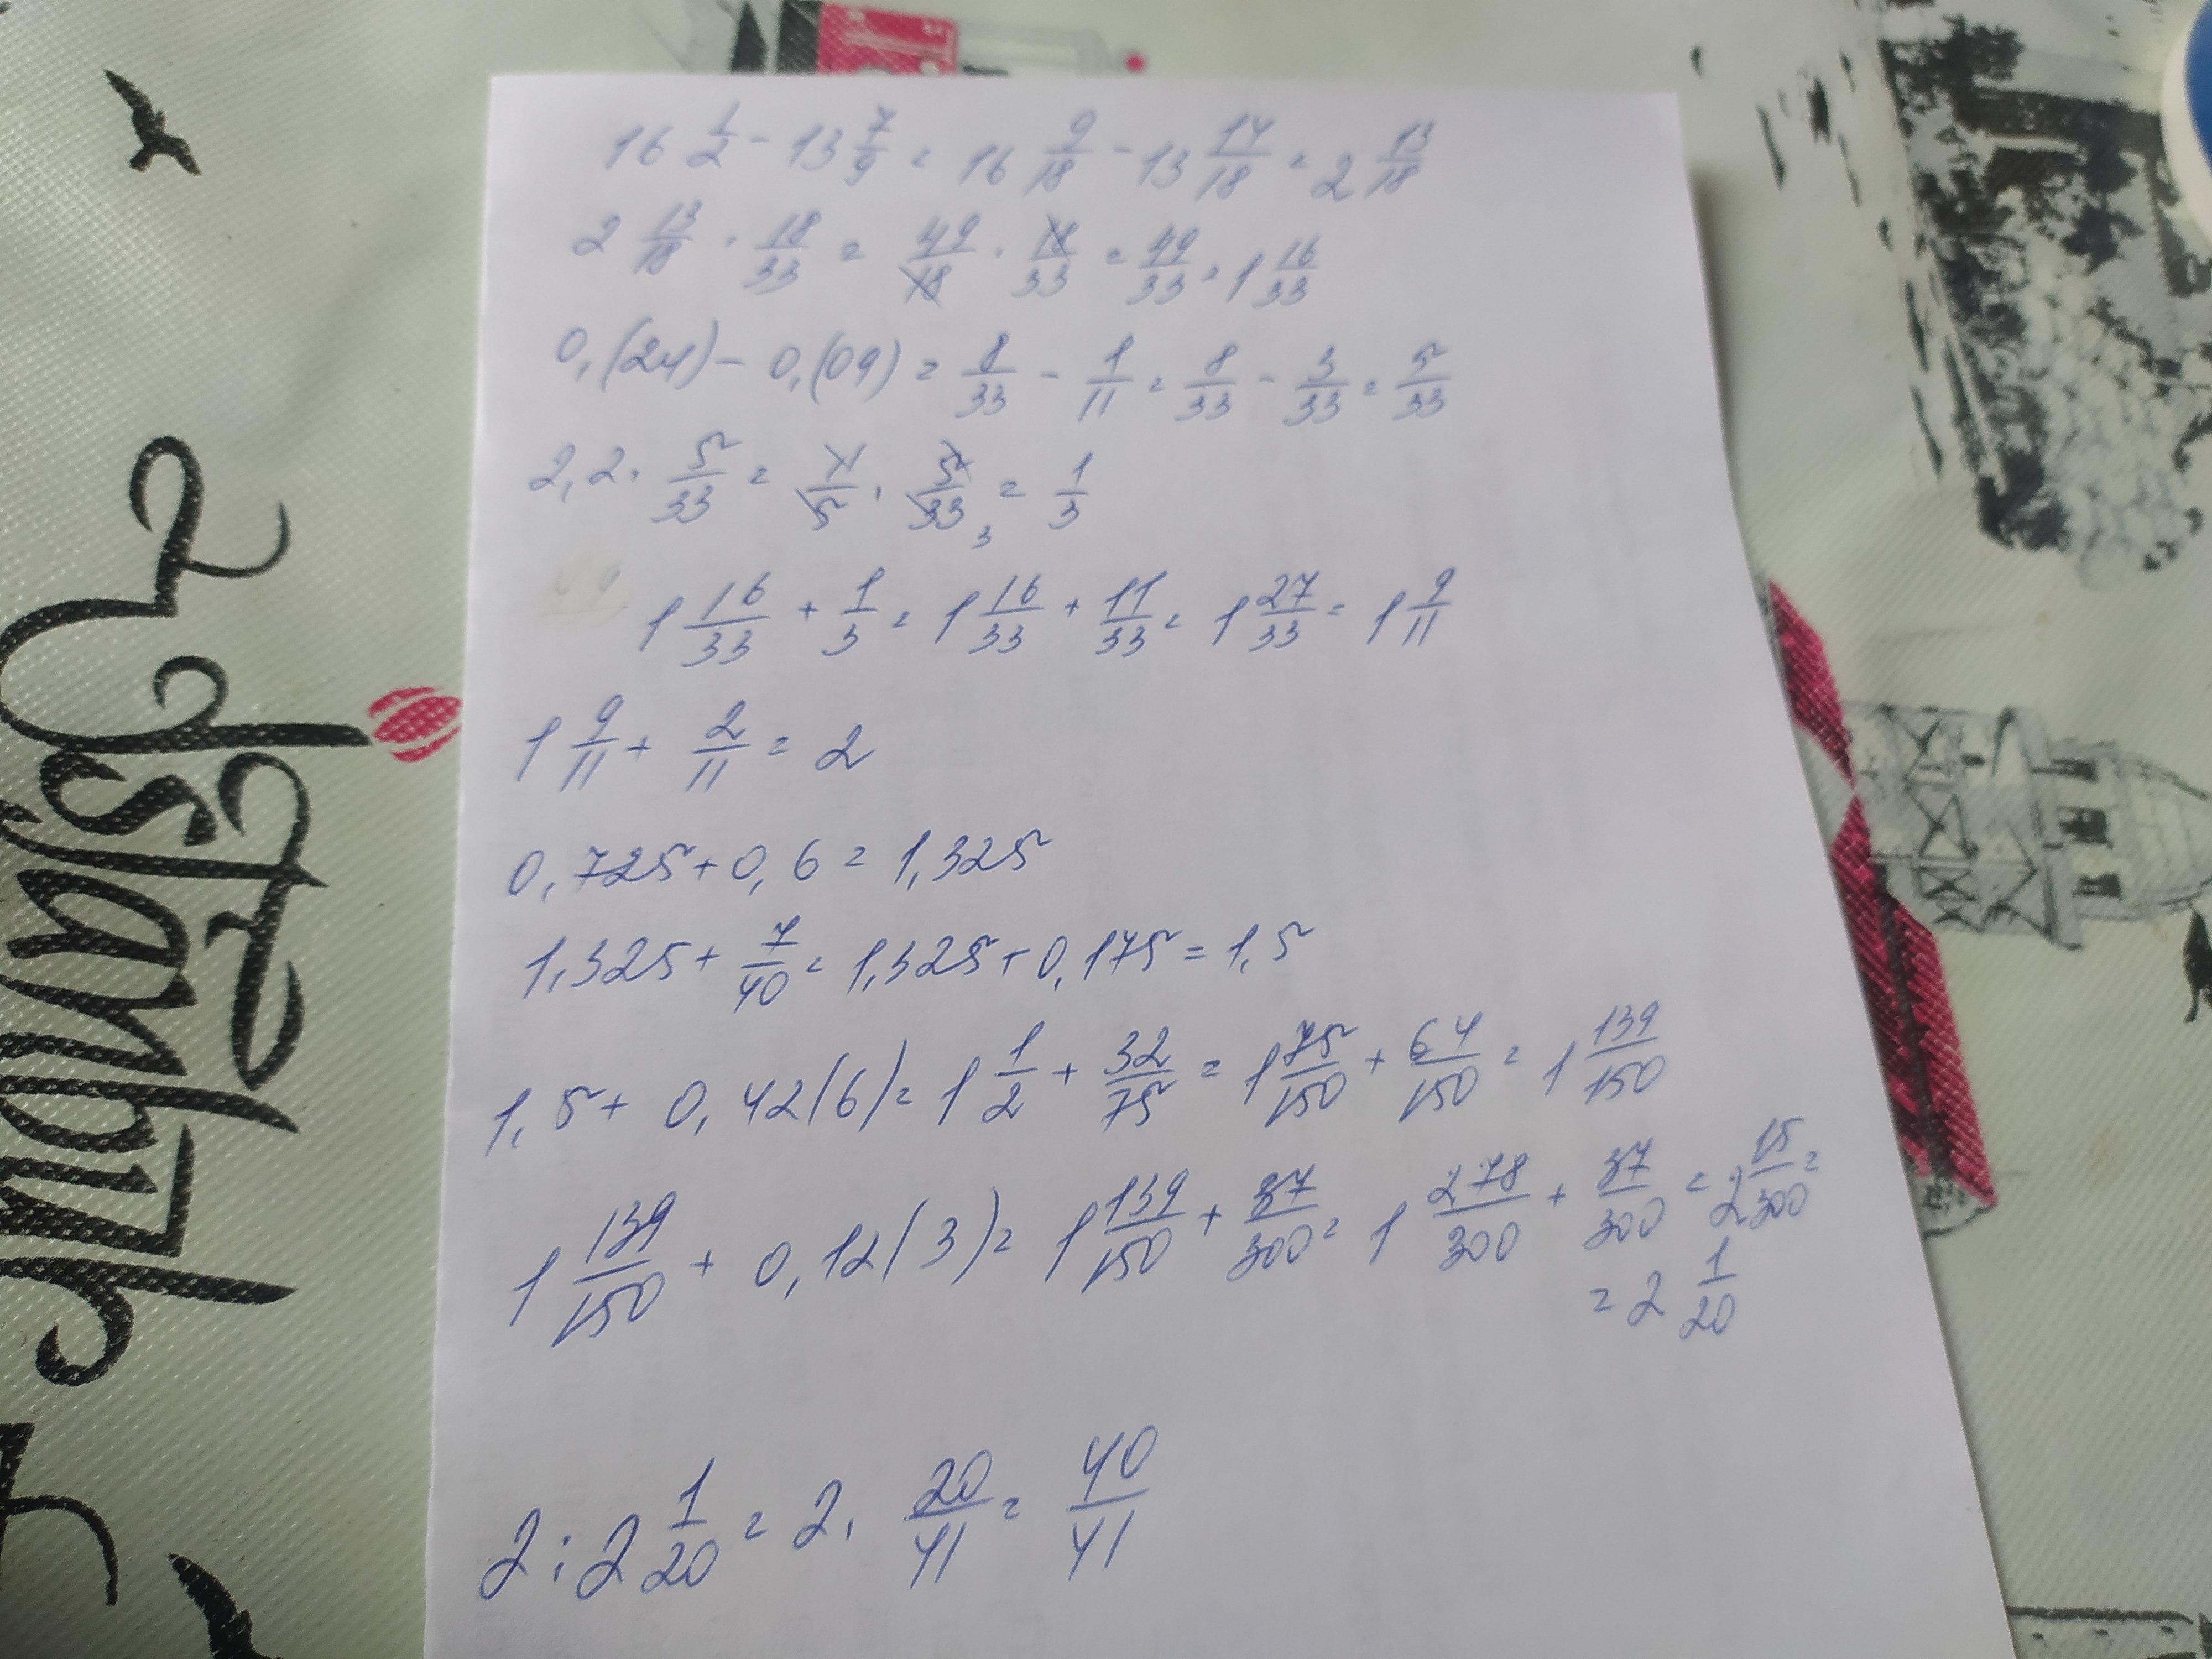 16 1/2 - 13 7/9 = 16 9/18 - 13 14/18 = 2 13/18
2 13/18 · 18/33 = 49/18 · 18/33 = 49/33 = 1 16/33
0,(24) - 0,(09) = 8/33 - 1/11 = 8/33 - 3/33 = 5/33
2,2 · 5/33 = 11/5 · 5/33 3 = 1/3
1 16/33 + 1/3 = 1 16/33 + 11/33 = 1 27/33 = 1 9/11
1 9/11 + 2/11 = 2
0,725 + 0,6 = 1,325
1,325 + 7/40 = 1,325 + 0,175 = 1,5
1,5 + 0,42(6) = 1 1/2 + 32/75 = 1 75/150 + 64/150 = 1 139/150
1 139/150 + 0,12(3) = 1 139/150 + 37/300 = 1 278/300 + 37/300 = 2 15/300 =
= 2 1/20
2 : 2 1/20 = 2 · 20/41 = 40/41